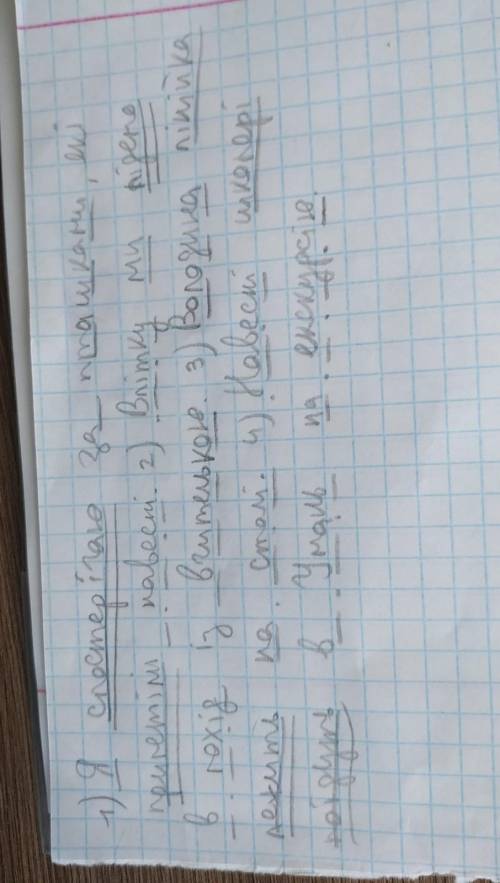 1) Я спостерігаю за пташками, які
прилетіли навесні. 2) Влітку ми підемо
в похід із вчителькою. 3) Володина лінійка
лежить на столі. 4) Навесні школярі
поїдуть в Умань на екскурсію.